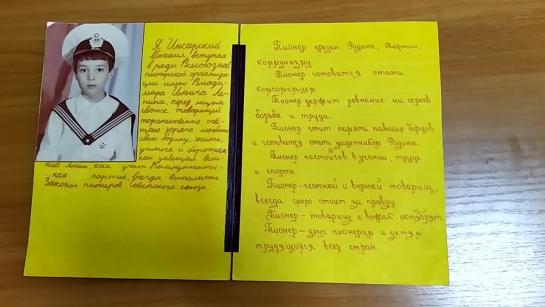 Я Инсарский
Михаил, вступая
в ряды Всесоюзной
пионерской организа-
ции имени Влади-
мира Ильича Ле-
нина, перед лицом
своих товарищей
торжественно обе-
щаю: горячо любить
свою Родину, жить,
учиться и бороться
как завещал вели-
кий Ленин, как учит Коммунистиче-
ская партия, всегда выполнять
Законы пионеров Советского союза.
Пионер предан Родине, партии,
коммунизму
Пионер готовится стать
комсомольцем
Пионер держит равнение на героев
борьбы и труда.
Пионер чтит память павших борцов
и готовится стать защитником Родины.
Пионер настойчив в учении, труде
и спорте.
Пионер-честный и верный товарищ,
всегда смело стоит за правду
Пионер - товарищ и вожак октябрят.
Пионер - друг пионерам и детям
трудящихся всех стран.